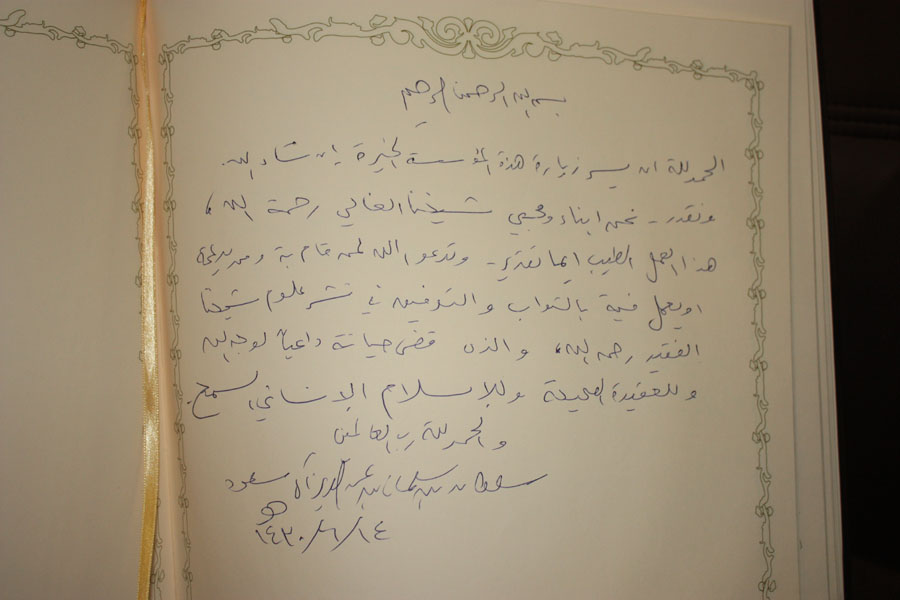 بسم الله الرحمن الرحيم
الحمد للة ان يسر زيارة هذة المؤسسة الخيرة إن شاء الله.
ونقدر - نحن ابناء ومحبي شيخنا الغالي رحمة الله،
هذا العمل الطيب ايما تقدير - وندعو الله لمن قام بة ومن يدعمة
او يعمل فية بالثواب والتوفيق في نشر علوم شيخنا
الفقيد رحمه الله، والذي قضى حياتة داعياً لوجه الله
وللعقيدة الصحيحة وللإسلام الإنساني السمح.
والحمد للة رب العالمين
سلطان بن سلمان بن عبدالعزيز آل سعود
١٤٣٠/٦/١٤ هـ